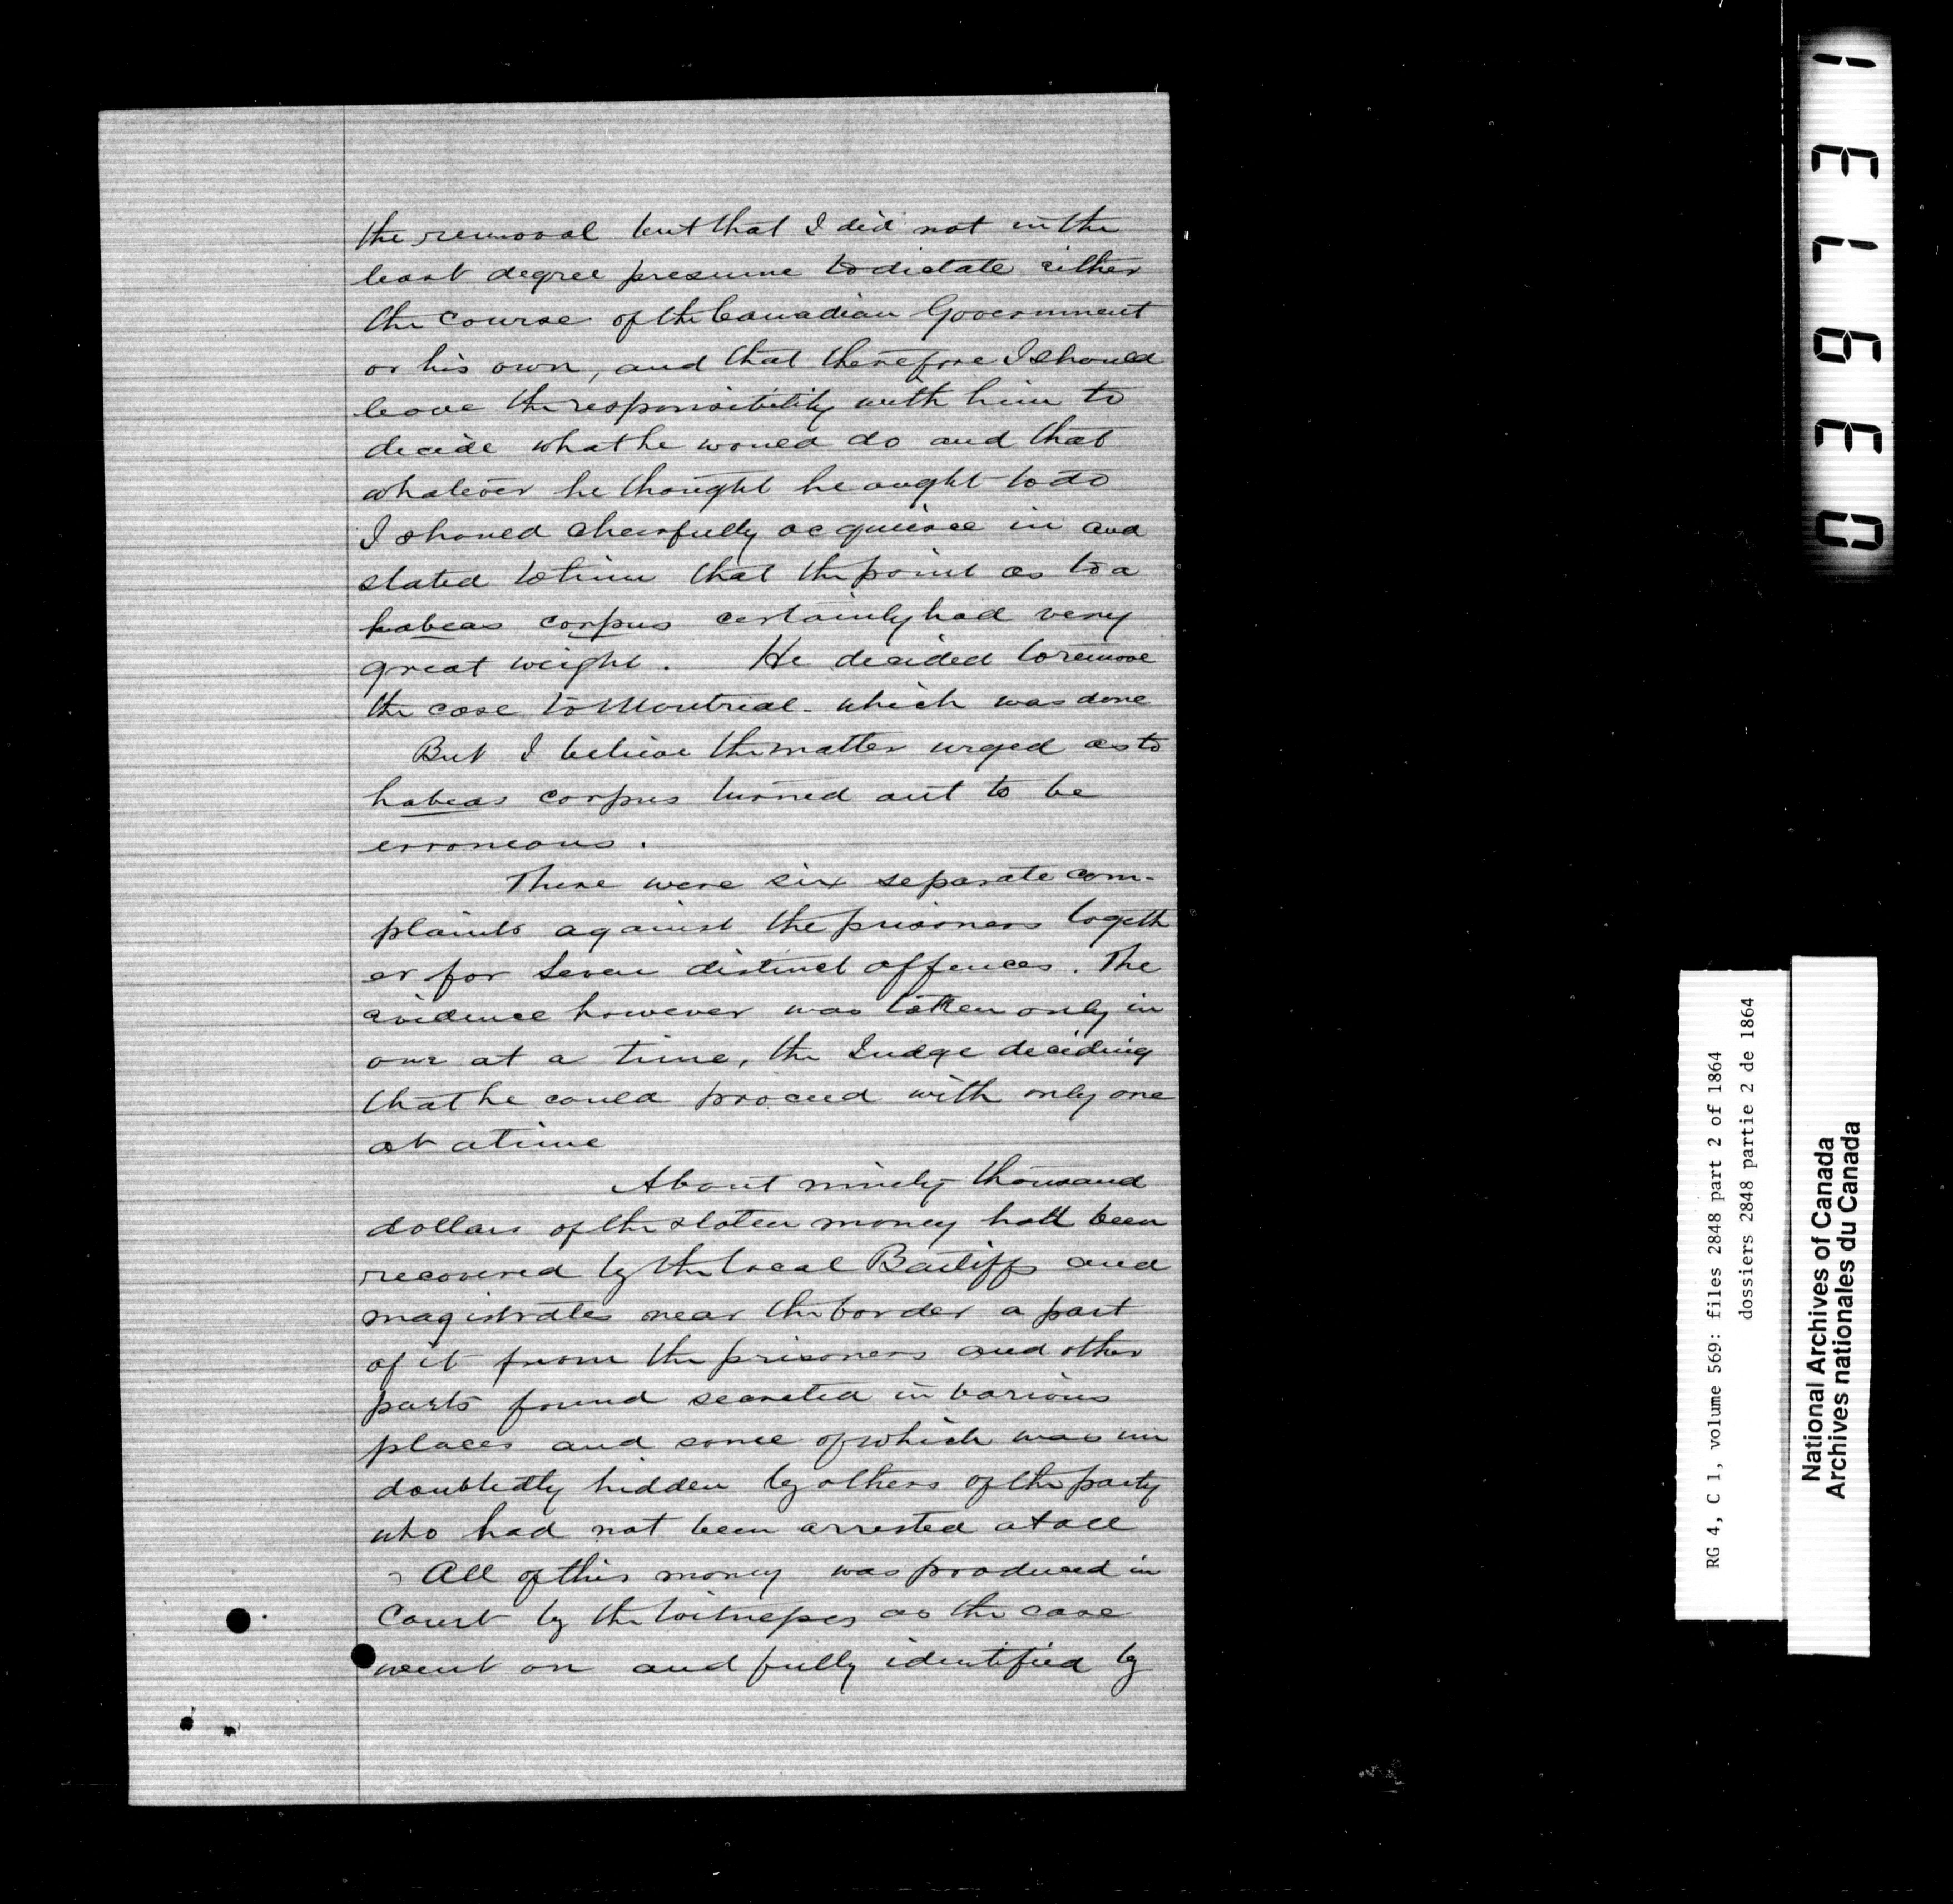 the removal but that I did not in the
least degree presume to dictate either
the course of the Canadian Government
or his own, and that therefore I should
leave the responsibility with him to
decide what he would do and that
whatever he thought he ought to do
I should cheerfully acquiesce in and
stated to him that the point as to a
habeas corpus certainly had very
great weight. He decided to remove
the case to Montreal - which was done
But I believe the matter urged as to
habeas corpus turned out to be
erroneous.
There were six separate com-
plaints against the prisoners togeth
er for seven distinct offences. The
evidence however was taken only in
one at a time, the Judge deciding
that he could proceed with only one
at a time
About ninety thousand
dollars of the stolen money had been
recovered by the local Bailiffs and
magistrates near the border a part
of it from the prisoners and other
parts found secreted in various
places and some of which was un
doubtedly hidden by others of the party
who had not been arrested at all
All of this money was produced in
Court by the witnesses as the case
went on and fully identified by
RG 4, C 1, volume 569: files 2848 part 2 of 1864
dossiers 2848 partie 2 de 1864
National Archives of Canada
Archives nationales du Canada